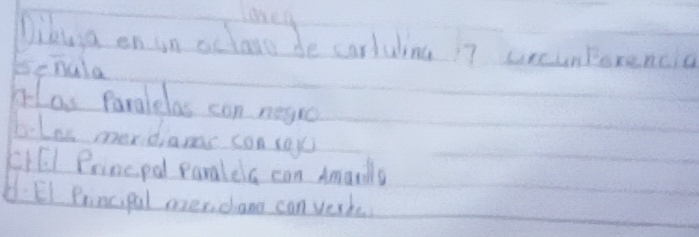 Tarea
Dibuja en un octavo de cartulina 17 circunferencia
señala
a-Las Paralelas con negro
b-Los meridianos con rojo
c-El Principal Paralela con Amarillo
d-El Principal meridiano con verde